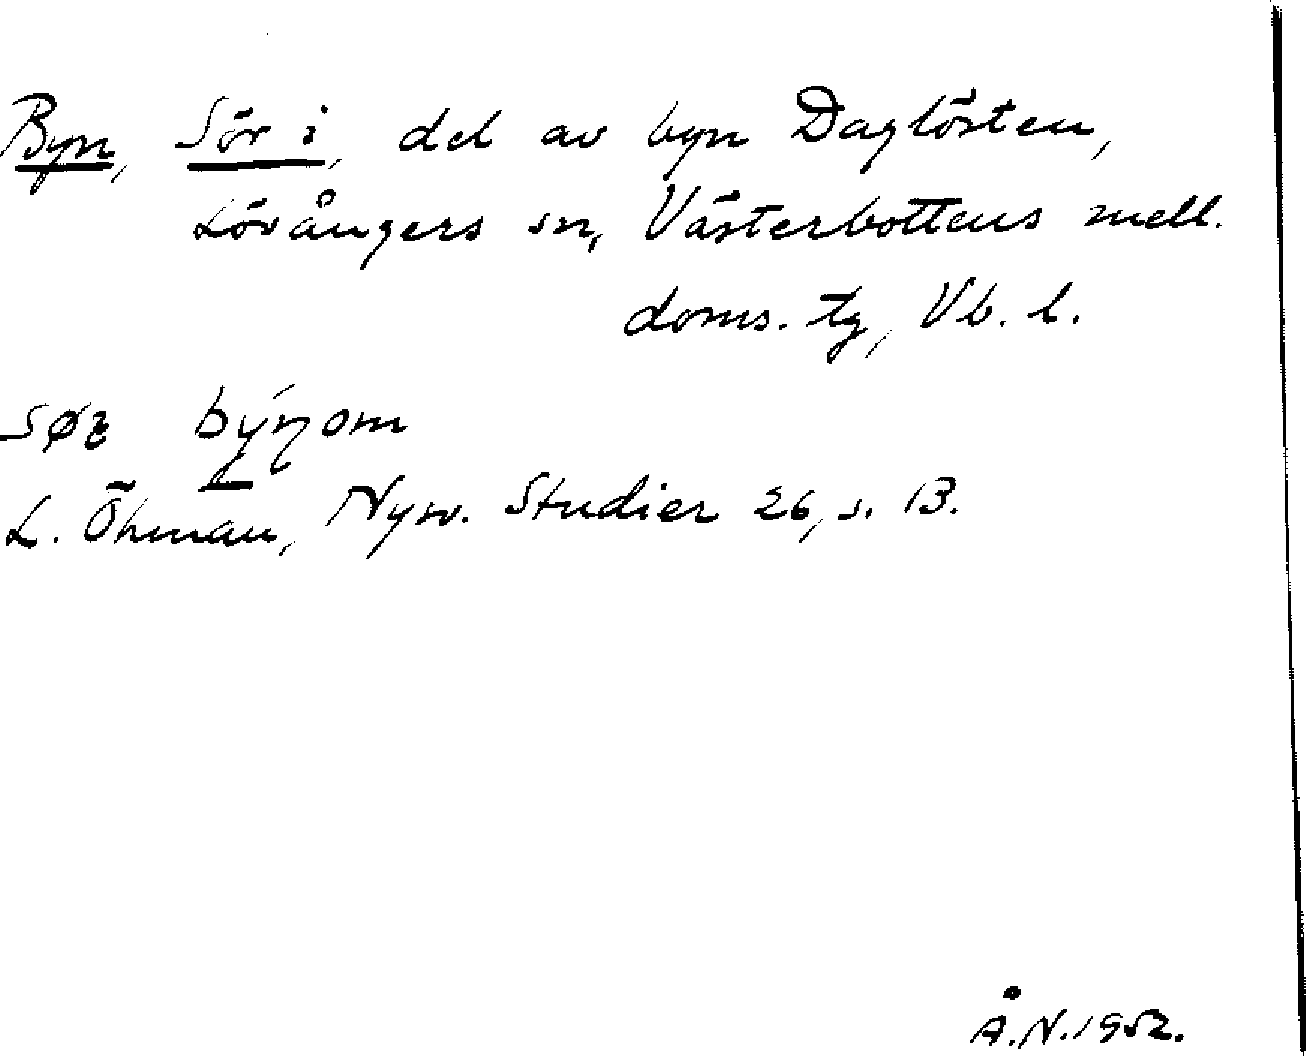 Byn, Sör i, del av byn Daglösten,
Lövångers sn, Västerbottens mell.
doms. tg, Vb. l.
søʀ býŋom
L. Öhman, Nysv. Studier 26, s. 13.
Å.N.1952.